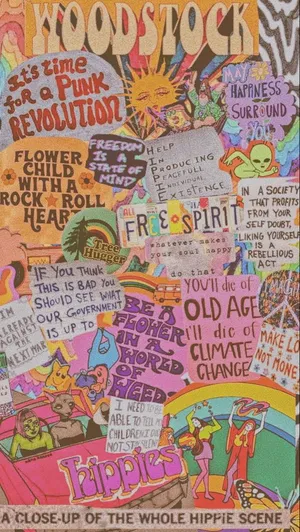 WOODSTOCK
it's time
for a PUNK
REVOLUTION
MY
HAPPINESS
SURROUND
YOU
FREEDOM
IS A
STATE OF
MIND
HELP
IN
PRODUCING
PEACEFULL
INDIVIDUAL
EXISTENCE
FLOWER
CHILD
WITH A
ROCK ROLL
HEART
IN A SOCIETY
THAT PROFITS
FROM YOUR
SELF DOUBT,
LIKING YOURSELF
IS A
REBELLIOUS
ACT
ALL
FREE SPIRIT
whatever makes
your soul happy
do that
Tree
Hugger
IF YOU THINK
THIS IS BAD YOU
SHOULD SEE WHAT
OUR GOVERNMENT
IS UP TO
YOU'LL die of
OLD AGE
I'll die of
CLIMATE
CHANGE
BE A
FLOWER
IN A
WORLD
OF
WEED
AGAINST
THE
MAKE LO
NOT MONEY
I NEED TO BE
ABLE TO TELL M
CHILDREN I DID
NOT STAY SILENT
hippies
A CLOSE-UP OF THE WHOLE HIPPIE SCENE